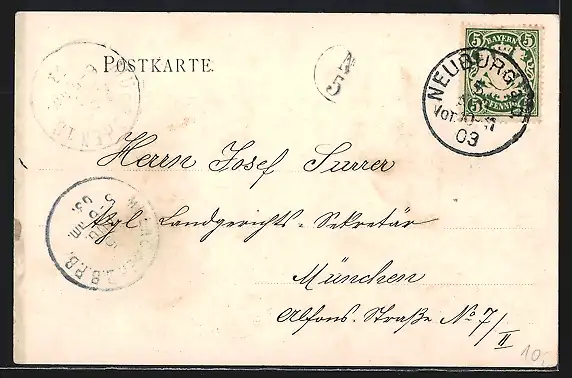 POSTKARTE.
N
5
5 BAYERN 5
PFENNIG
NEUBURG
5
03
Herrn Josef Surrer
Kgl. Landgerichts-Sekretär
München
Alfons-Straße No 7/II
10,-